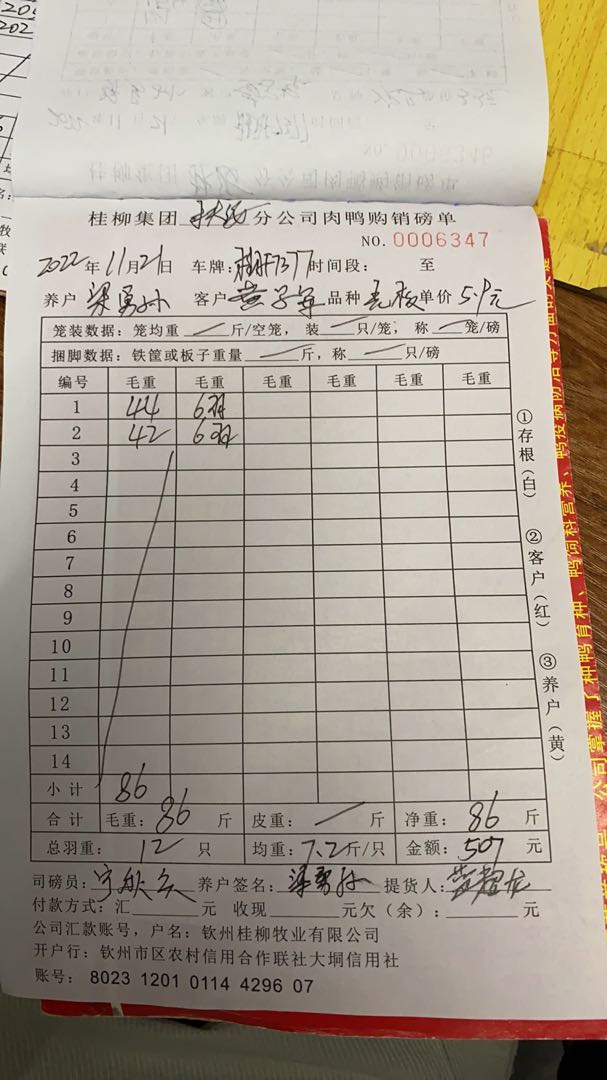 桂柳集团 分公司肉鸭购销磅单
NO. 0006347
2022年11月21日 车牌: 时间段: 至
养户 梁勇孙 客户 品种 单价 5.9元
笼装数据：笼均重 斤/空笼，装 只/笼，称 笼/磅
捆脚数据：铁筐或板子重量 斤，称 只/磅
编号 毛重 毛重 毛重 毛重 毛重 毛重
1 44 6羽
2 42 6羽
3
4
5
6
7
8
9
10
11
12
13
14
小计 86
合计 毛重：86 斤 皮重： 斤 净重：86 斤
总羽重：12 只 均重：7.2斤/只 金额：507 元
司磅员： 养户签名：梁勇孙 提货人：
付款方式：汇 元 收现 元欠（余）： 元
公司汇款账号，户名：钦州桂柳牧业有限公司
开户行：钦州市区农村信用合作联社大垌信用社
账号：8023 1201 0114 4296 07
①存根（白）
②客户（红）
③养户（黄）
公司掌握了种鸭育种、鸭饲料营养、鸭疫病防治等方面的